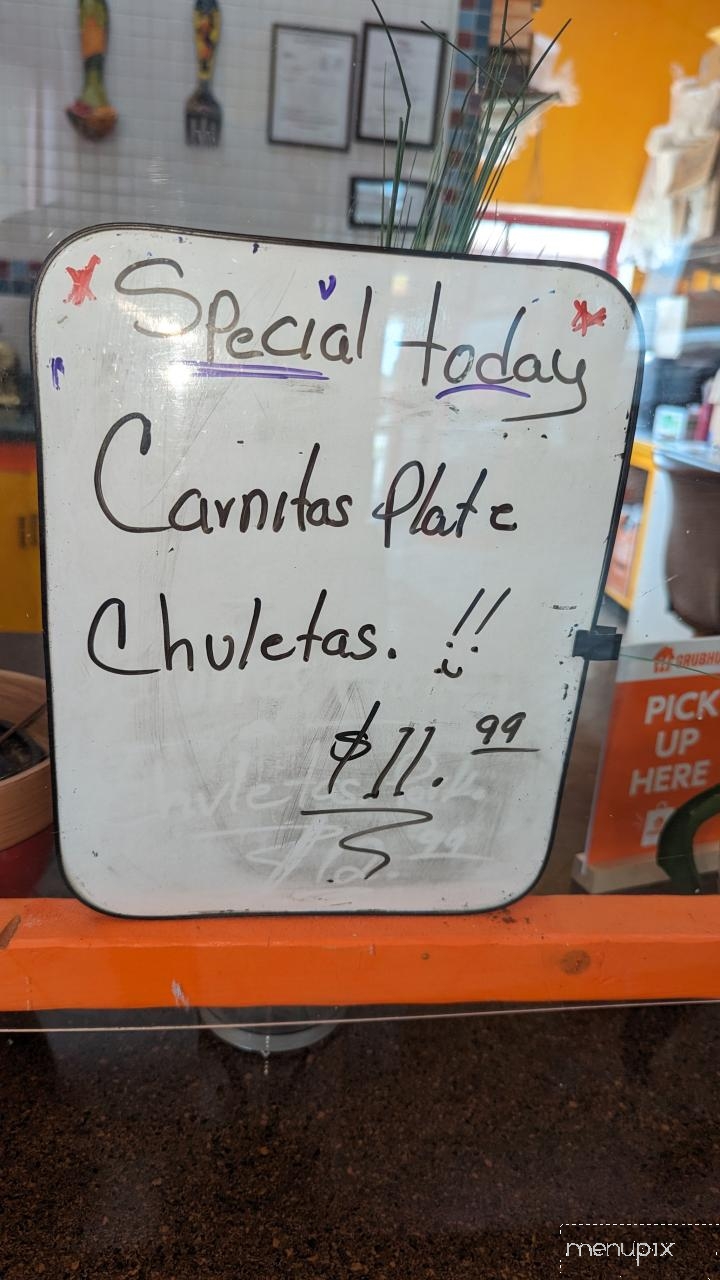 Special today
Carnitas Plate
Chuletas. !!
$11.99
Chuletas
$12.99
GRUBHU
PICK
UP
HERE
menupix